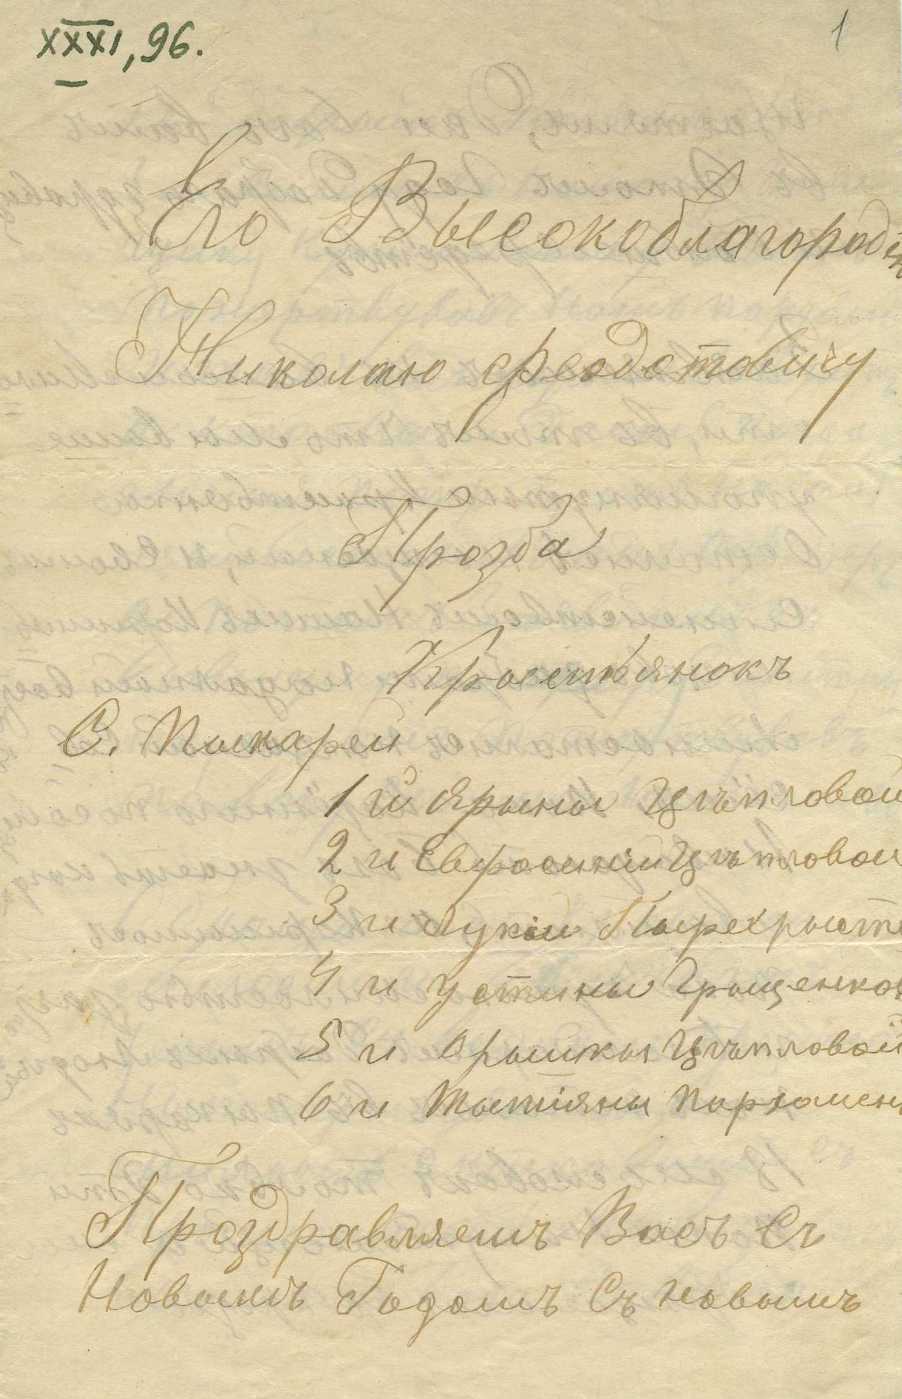 XXXI, 96.
1
Его Высокоблагородію
Николаю Феодотовичу
Прозба
Крестянокъ
С. Пискарей
1 й Ярины Цъпловой
2 й Евфросиніи Цъпловой
3 й Лукіи
4 й Устины Грищенковой
5 й Оришки Цъпловой
6 й Татіяны Пархомен
Проздравляемъ Васъ Съ
Новымъ Годомъ Съ новымъ